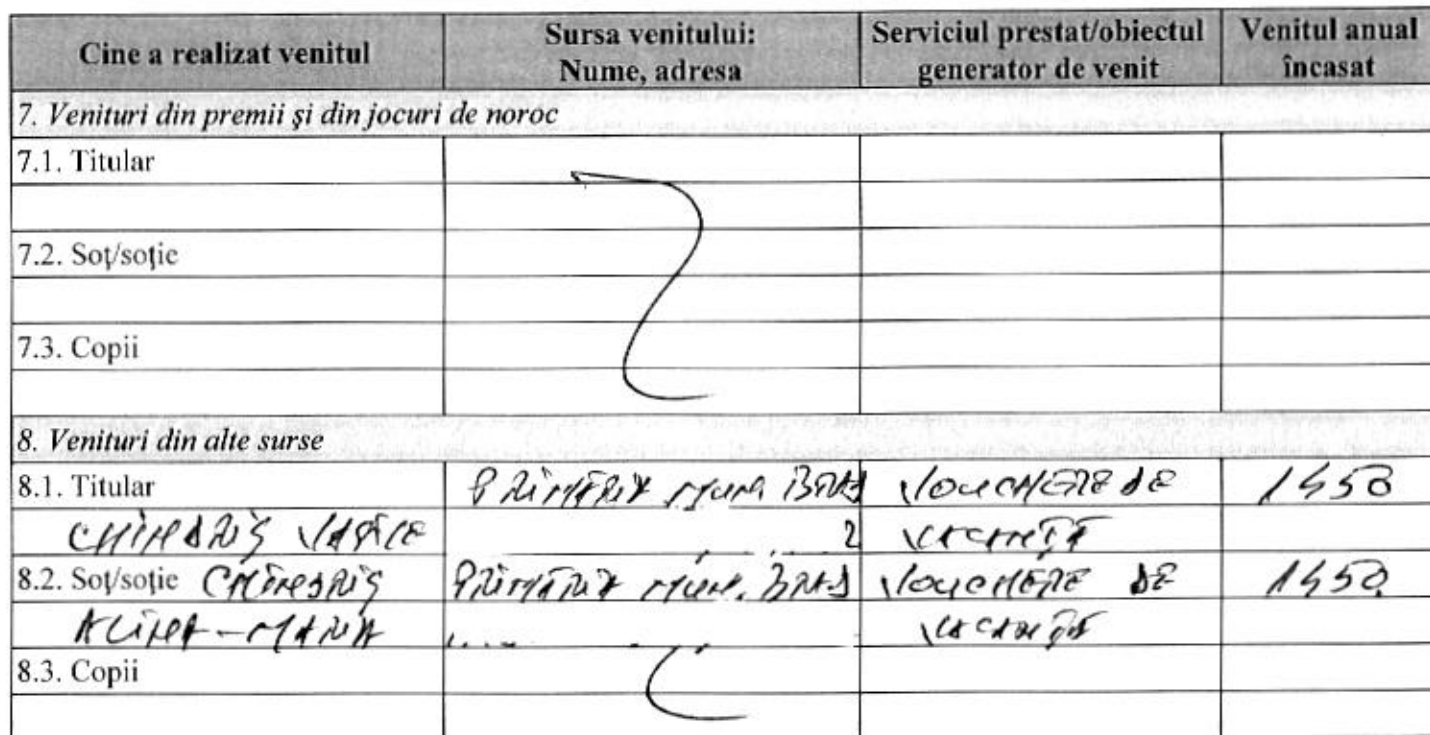 Cine a realizat venitul
Sursa venitului:
Nume, adresa
Serviciul prestat/obiectul
generator de venit
Venitul anual
încasat
7. Venituri din premii şi din jocuri de noroc
7.1. Titular
7.2. Soţ/soţie
7.3. Copii
8. Venituri din alte surse
8.1. Titular PRIMĂRIA MUN. BRAD VOUCHERE DE 1450
VASILE 2 VACANŢĂ
8.2. Soţ/soţie PRIMĂRIA MUN. BRAD VOUCHERE DE 1450
ALINA-MARIA VACANŢĂ
8.3. Copii